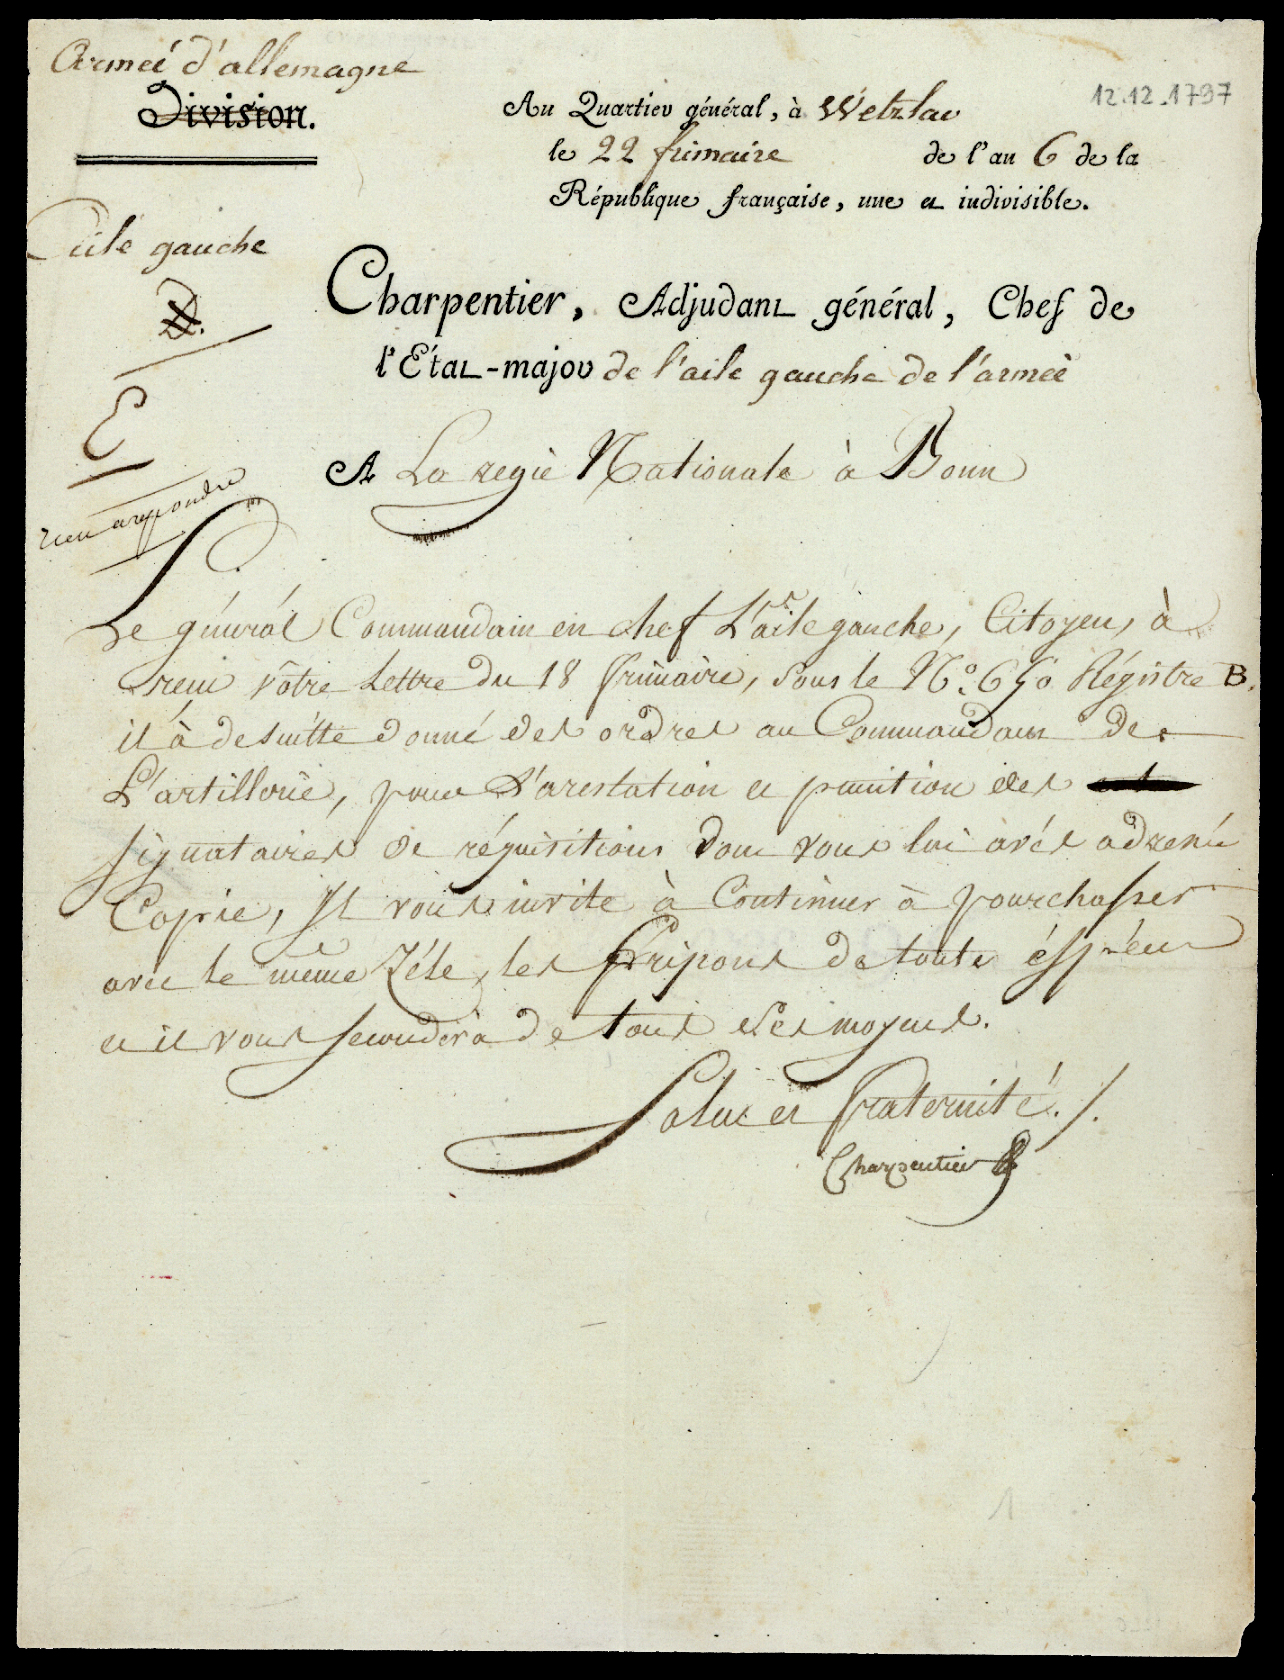 Armeé d'allemagne
Division.
12.12.1797
Au Quartier général, à Wetzlar
le 22 frimaire de l'an 6 de la
République française, une et indivisible.
Aile gauche
D.
E
rien arepondre
Charpentier, Adjudant général, Chef de
l'État-major de l'aile gauche de l'armeè
A La regie Nationale à Bonn
Le général Commandant en chef L'aile gauche, Citoyen, à
reçu vôtre Lettre du 18 frimaire, sous le N.º 650 Régistre B.
il à desuitte donné des ordres au Commandant de
L'artillerie, pour l'arestation et punition des
signataires de réquisitions dont vous lui avés adressé
Copie, Il vous invite à Continuer à pourchasser
avec le même Zéle, les fripons de toute éspéce
et il vous secondera de tous ses moyens.
Salut et fraternité./.
Charpentier
1